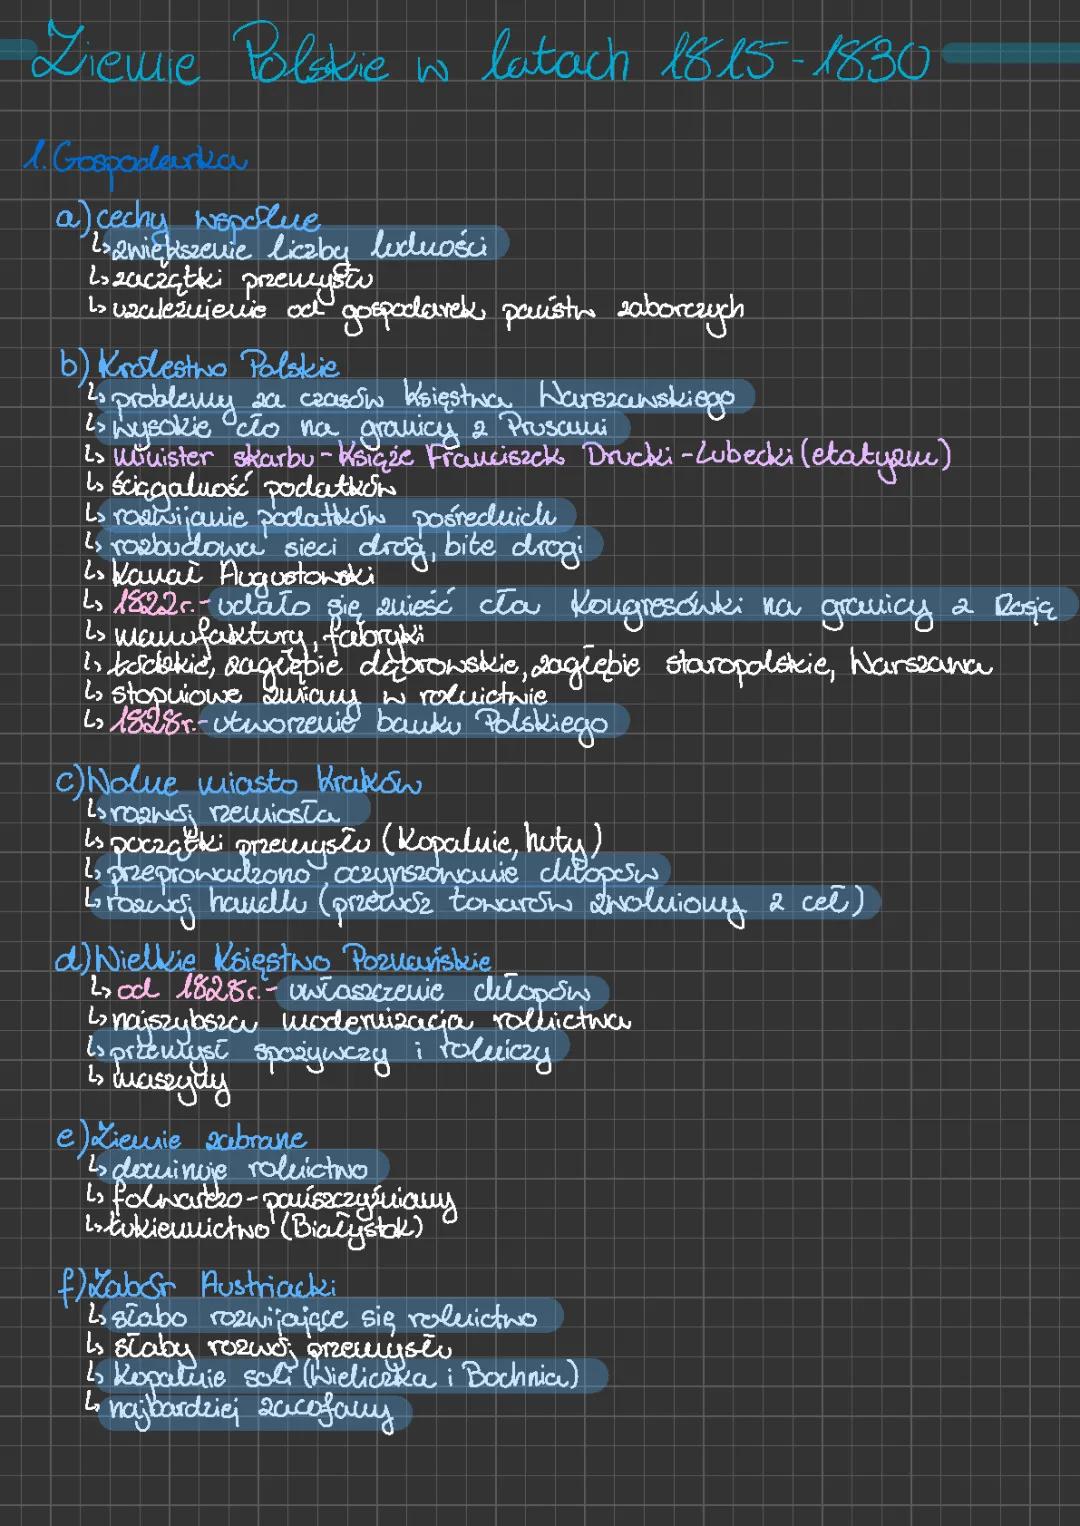 Ziemie Polskie w latach 1815-1830
1. Gospodarka
a) cechy wspólne
↳ zwiększenie liczby ludności
↳ zaczątki przemysłu
↳ uzależnienie od gospodarek państw zaborczych
b) Królestwo Polskie
↳ problemy za czasów Księstwa Warszawskiego
↳ wysokie cło na granicy z Prusami
↳ minister skarbu - Książe Franciszek Drucki - Lubecki (etatyzm)
↳ ściągalność podatków
↳ rozwijanie podatków pośrednich
↳ rozbudowa sieci dróg, bite drogi
↳ Kanał Augustowski
↳ 1822r. - udało się znieść cła Kongresówki na granicy z Rosją
↳ manufaktury, fabryki
↳ Łódzkie, zagłębie dąbrowskie, zagłębie staropolskie, Warszawa
↳ stopniowe zmiany w rolnictwie
↳ 1828r. - utworzenie banku Polskiego
c) Wolne miasto Kraków
↳ rozwój rzemiosła
↳ początki przemysłu (Kopalnie, huty)
↳ przeprowadzono oczynszowanie chłopów
↳ rozwój handlu (przewóz towarów zwolniony z ceł)
d) Wielkie Księstwo Poznańskie
↳ od 1828r. - uwłaszczenie chłopów
↳ najszybsza modernizacja rolnictwa
↳ przemysł spożywczy i rolniczy
↳ maszyny
e) Ziemie zabrane
↳ dominuje rolnictwo
↳ folwarczo - pańszczyźniany
↳ Łukiennictwo (Białystok)
f) Zabór Austriacki
↳ słabo rozwijające się rolnictwo
↳ słaby rozwój przemysłu
↳ Kopalnie soli (Wieliczka i Bochnia)
↳ najbardziej zacofany